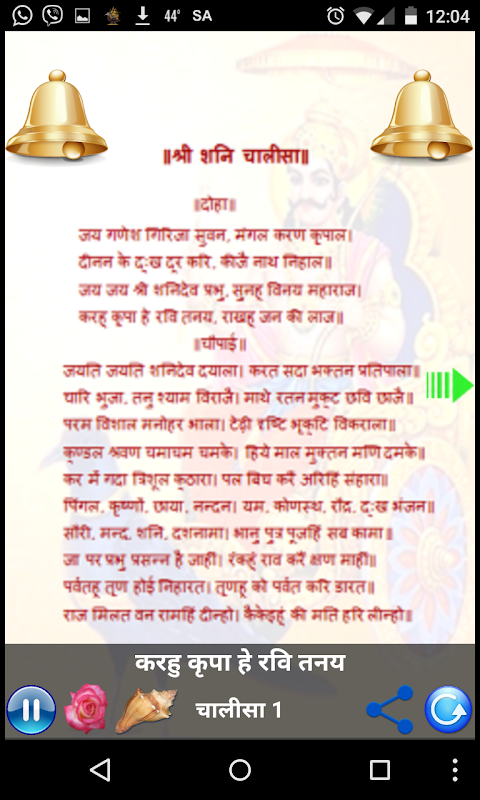 44° SA 12:04
॥श्री शनि चालीसा॥
॥दोहा॥
जय गणेश गिरिजा सुवन, मंगल करण कृपाल।
दीनन के दुःख दूर करि, कीजै नाथ निहाल॥
जय जय श्री शनिदेव प्रभु, सुनहु विनय महाराज।
करहु कृपा हे रवि तनय, राखहु जन की लाज॥
॥चौपाई॥
जयति जयति शनिदेव दयाला। करत सदा भक्तन प्रतिपाला॥
चारि भुजा, तनु श्याम विराजै। माथे रतन मुकुट छवि छाजै॥
परम विशाल मनोहर भाला। टेढ़ी दृष्टि भृकुटि विकराला॥
कुण्डल श्रवण चमाचम चमके। हिये माल मुक्तन मणि दमके॥
कर में गदा त्रिशूल कुठारा। पल बिच करैं अरिहिं संहारा॥
पिंगल, कृष्णों, छाया, नन्दन। यम, कोणस्थ, रौद्र, दुःख भंजन॥
सौरी, मन्द, शनि, दशनामा। भानु पुत्र पूजहिं सब कामा॥
जा पर प्रभु प्रसन्न है जाहीं। रंकहुं राव करैं क्षण माहीं॥
पर्वतहू तृण होई निहारत। तृणहू को पर्वत करि डारत॥
राज मिलत वन रामहिं दीन्हो। कैकेइहुं की मति हरि लीन्हो॥
करहु कृपा हे रवि तनय
चालीसा 1